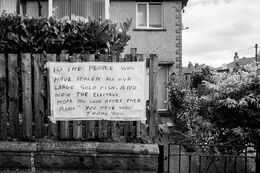 TO THE PEOPLE WHO
HAVE STOLEN ALL OUR
LARGE GOLD FISH. AND
NOW THE ELECTRIC.
HOPE YOU LOOK AFTER THEM
PLEASE. 'YOU HAVE WON'
THANK YOU